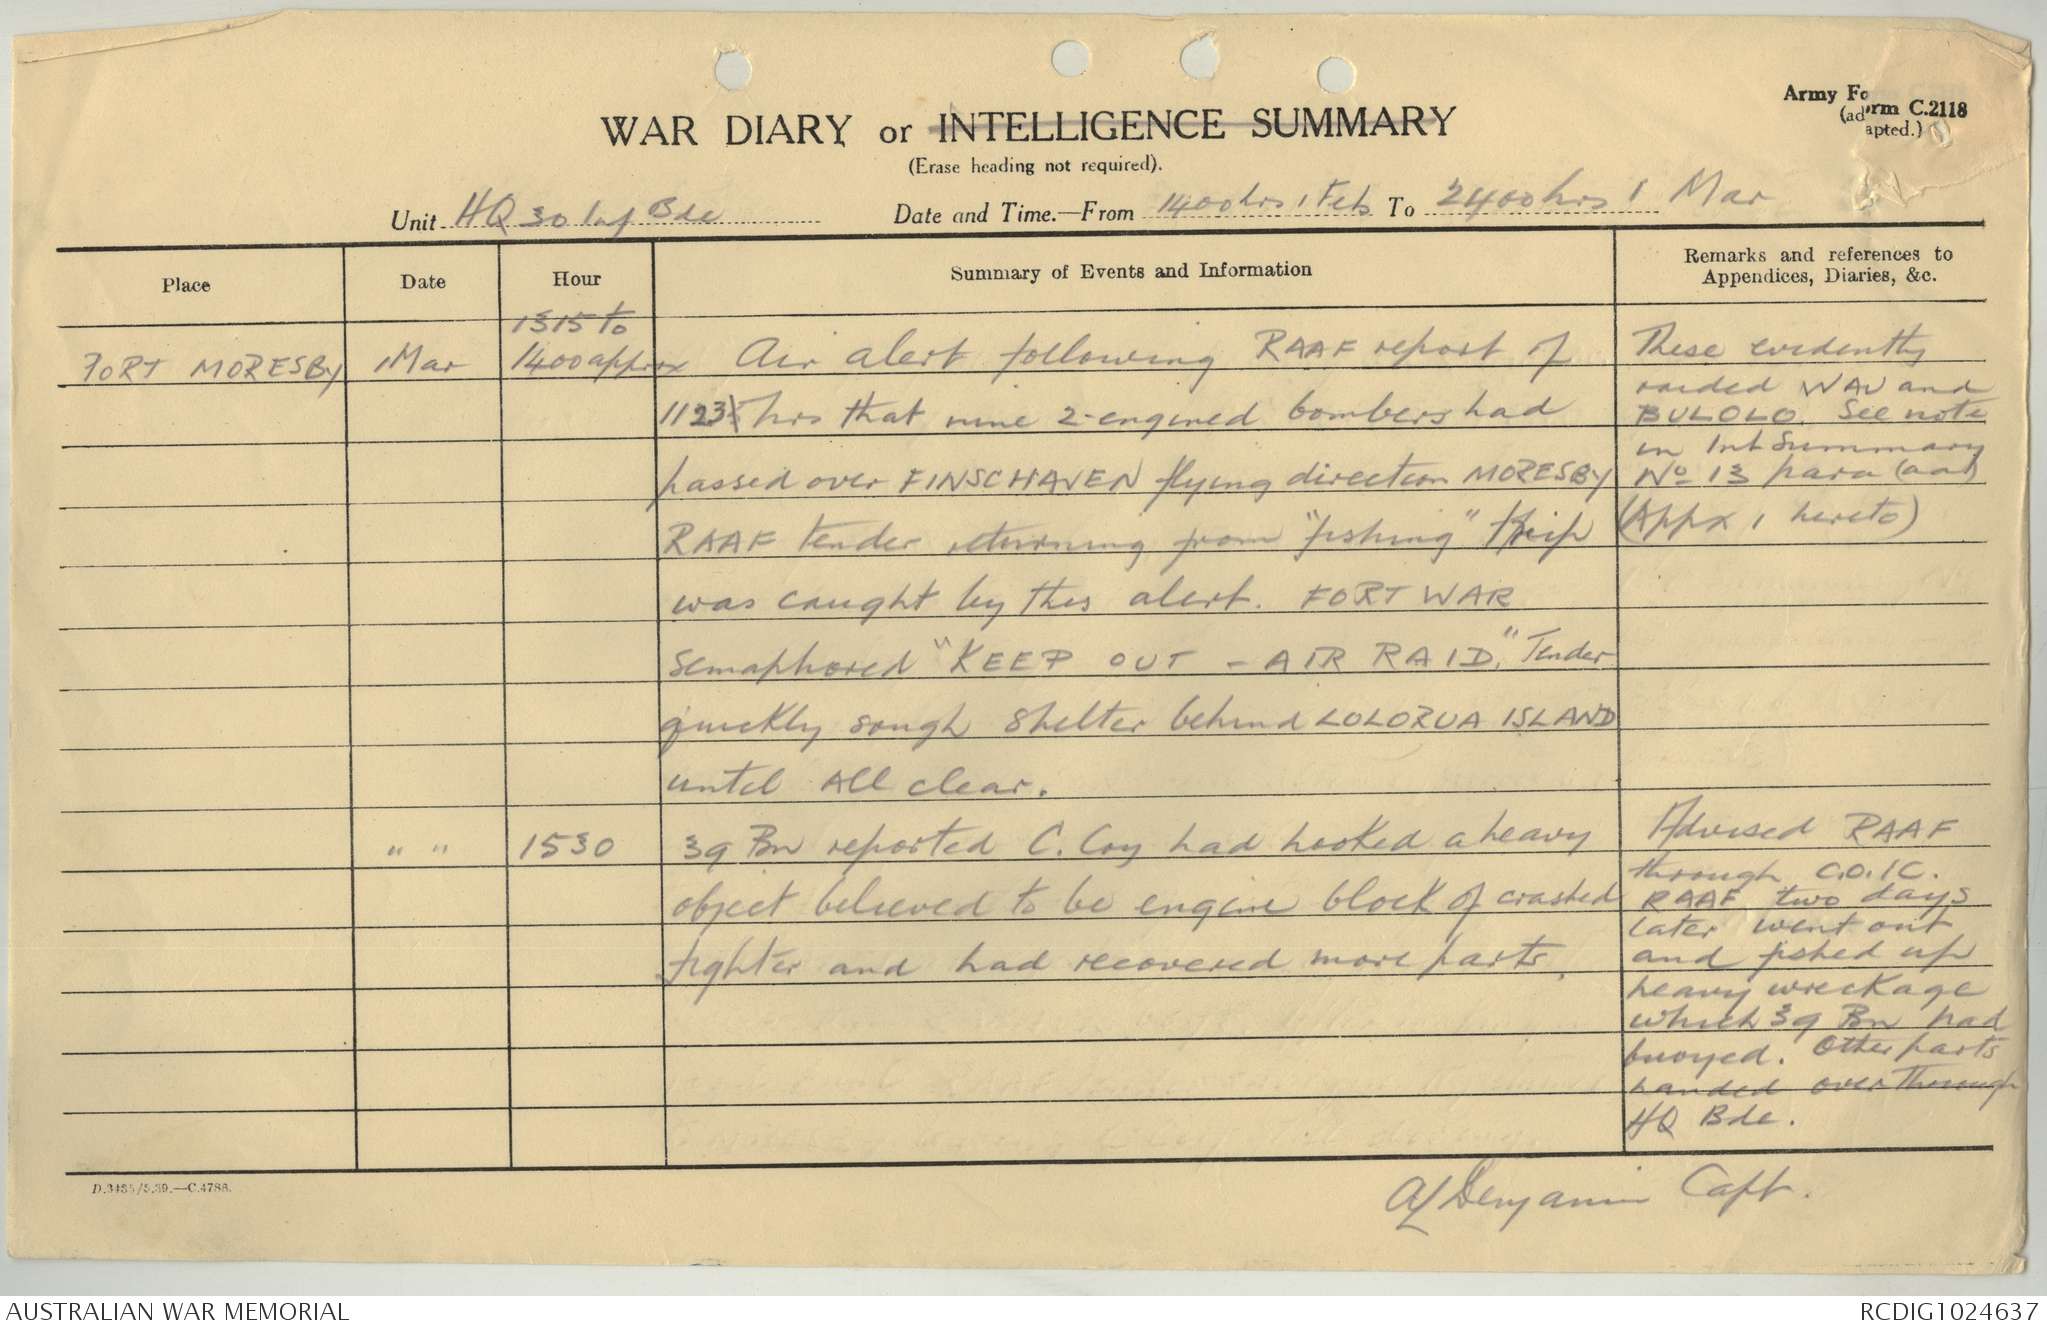 Army Form C.2118
(adapted.)
WAR DIARY or INTELLIGENCE SUMMARY
(Erase heading not required).
Unit HQ 30 Inf Bde Date and Time.—From 1400 hrs 1 Feb To 2400 hrs 1 Mar
Place Date Hour Summary of Events and Information Remarks and references to Appendices, Diaries, &c.
PORT MORESBY 1 Mar 1315 to 1400 approx Air alert following RAAF report of
1123 hrs that nine 2-engined bombers had
passed over FINSCHAVEN flying direction MORESBY
RAAF tender returning from "fishing" trip
was caught by this alert. FORT WAR
semaphored "KEEP OUT - AIR RAID." Tender
quickly sough shelter behind LOLORUA ISLAND
until All clear.
These evidently
raided WAU and
BULOLO. See note
in Int Summary
No 13 para (aa)
(Appx 1 hereto)
" " 1530 39 Bn reported C. Coy had hooked a heavy
object believed to be engine block of crashed
fighter and had recovered more parts.
Advised RAAF
through C.O.I.C.
RAAF two days
later went out
and fished up
heavy wreckage
which 39 Bn had
buoyed. Other parts
handed over through
HQ Bde.
D.3435/5.39.—C.4788.
AL Benjamin Capt.
AUSTRALIAN WAR MEMORIAL
RCDIG1024637